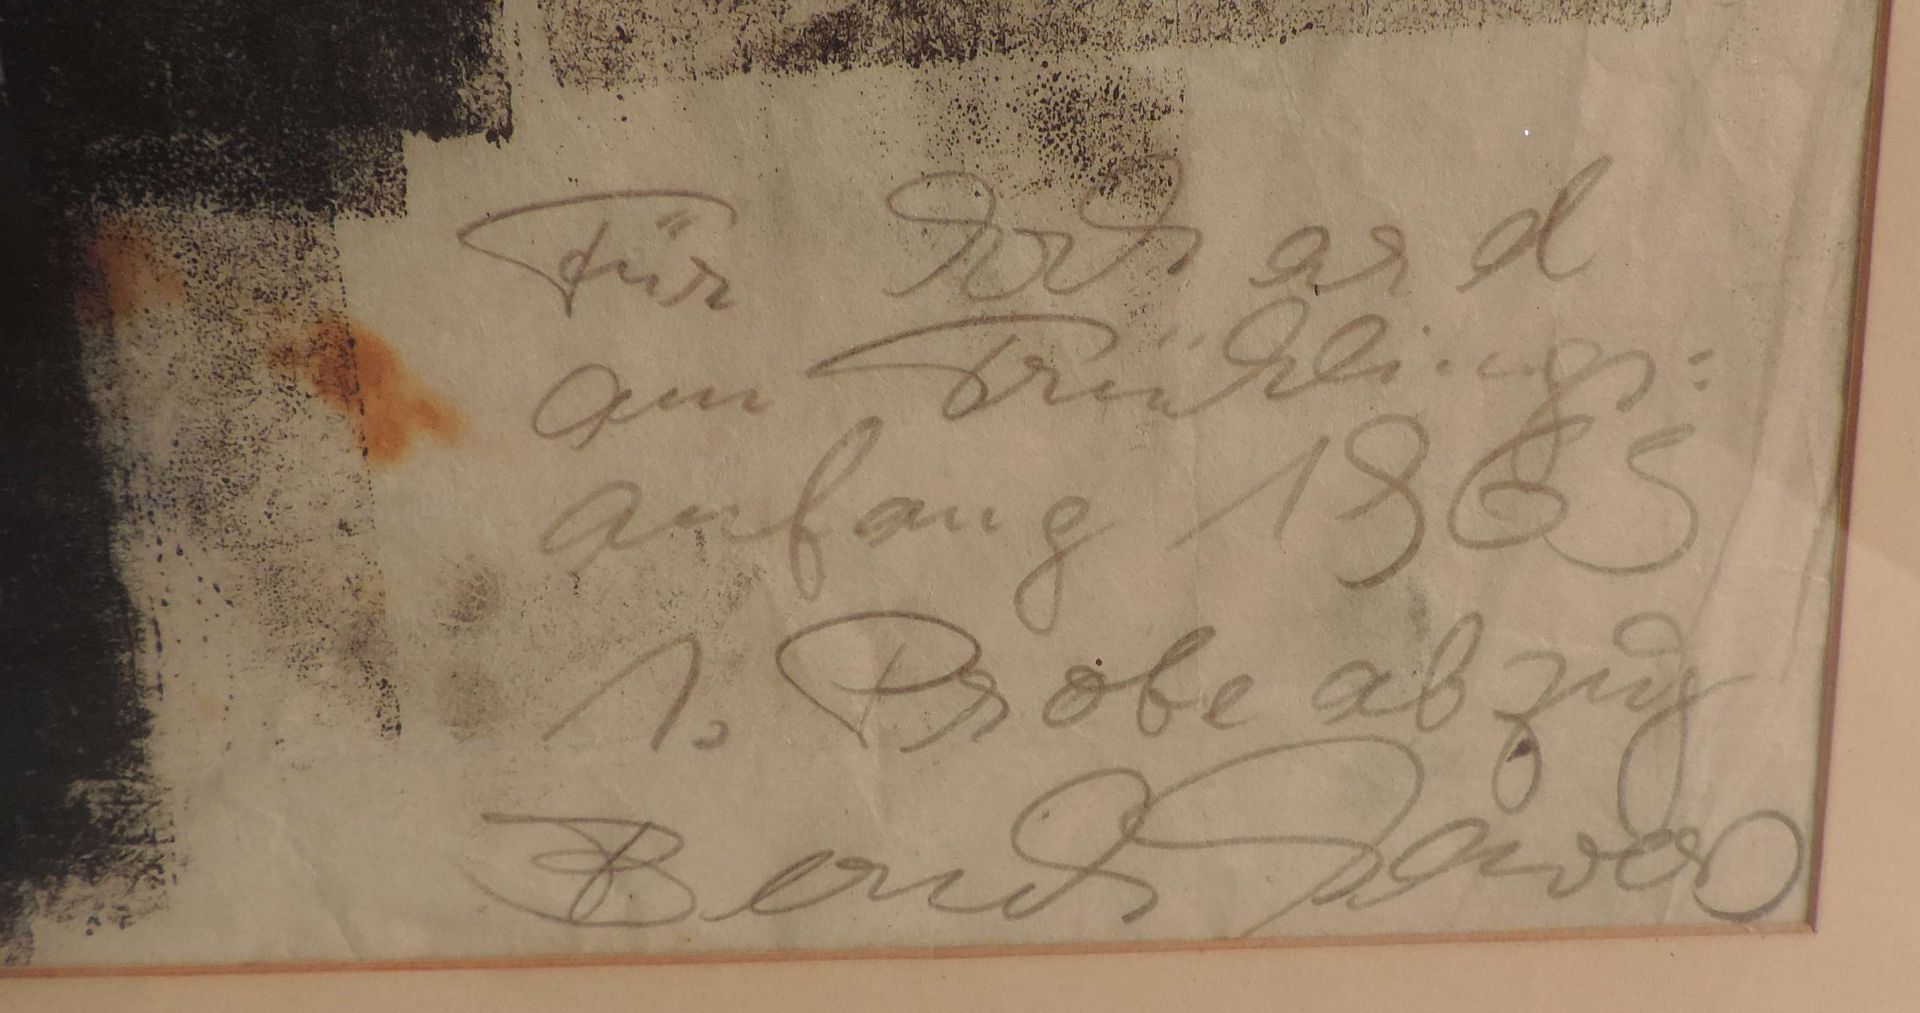 Für
am Frühlings:
anfang 1965
1. Probeabzug
Bernd